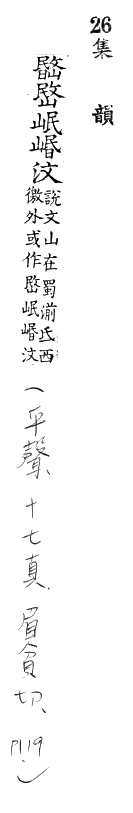 26 集韻
岷崏汶
說文山在蜀湔氐西
徼外或作岷崏汶
(平聲、十七真、眉貧切、P119)